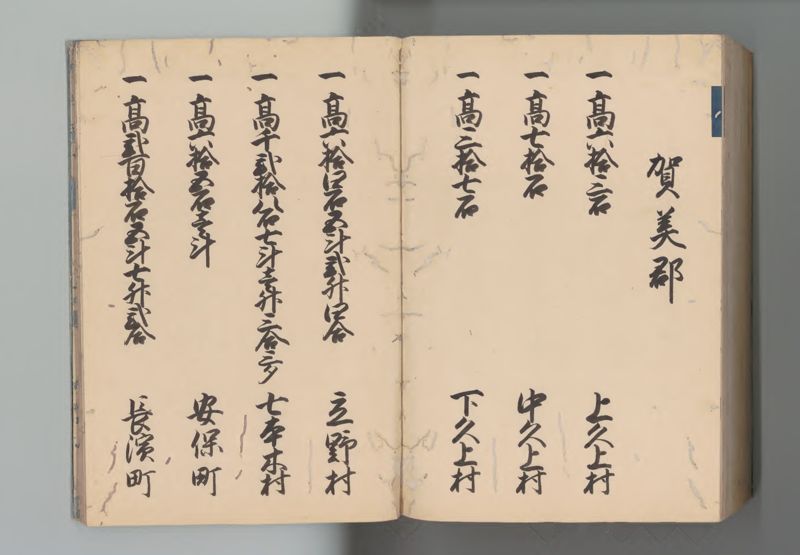 賀美郡
一高六拾三石 上久上村
一高七拾石 中久上村
一高三拾七石 下久上村
一高六拾四石五斗弐升四合 立野村
一高千弐拾八石七斗壱升三合三夕 七本木村
一高六拾五石壱斗 安保町
一高弐百拾石五斗七升弐合 長濱町